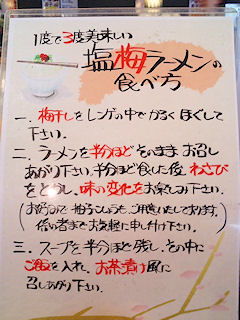 1度で3度美味しい
塩梅ラーメンの
食べ方
一、梅干しをレンゲの中でかるくほぐして
下さい。
二、ラーメンを半分ほどそのままお召し
あがり下さい。半分ほど食した後、わさび
をとかし、味の変化をお楽しみ下さい。
(お好みで柚子こしょうも、ご用意いたしております。
係の者までお気軽に申し付け下さい。)
三、スープを半分ほど残し、その中に
ご飯を入れ、お茶漬け風に
召しあがり下さい。